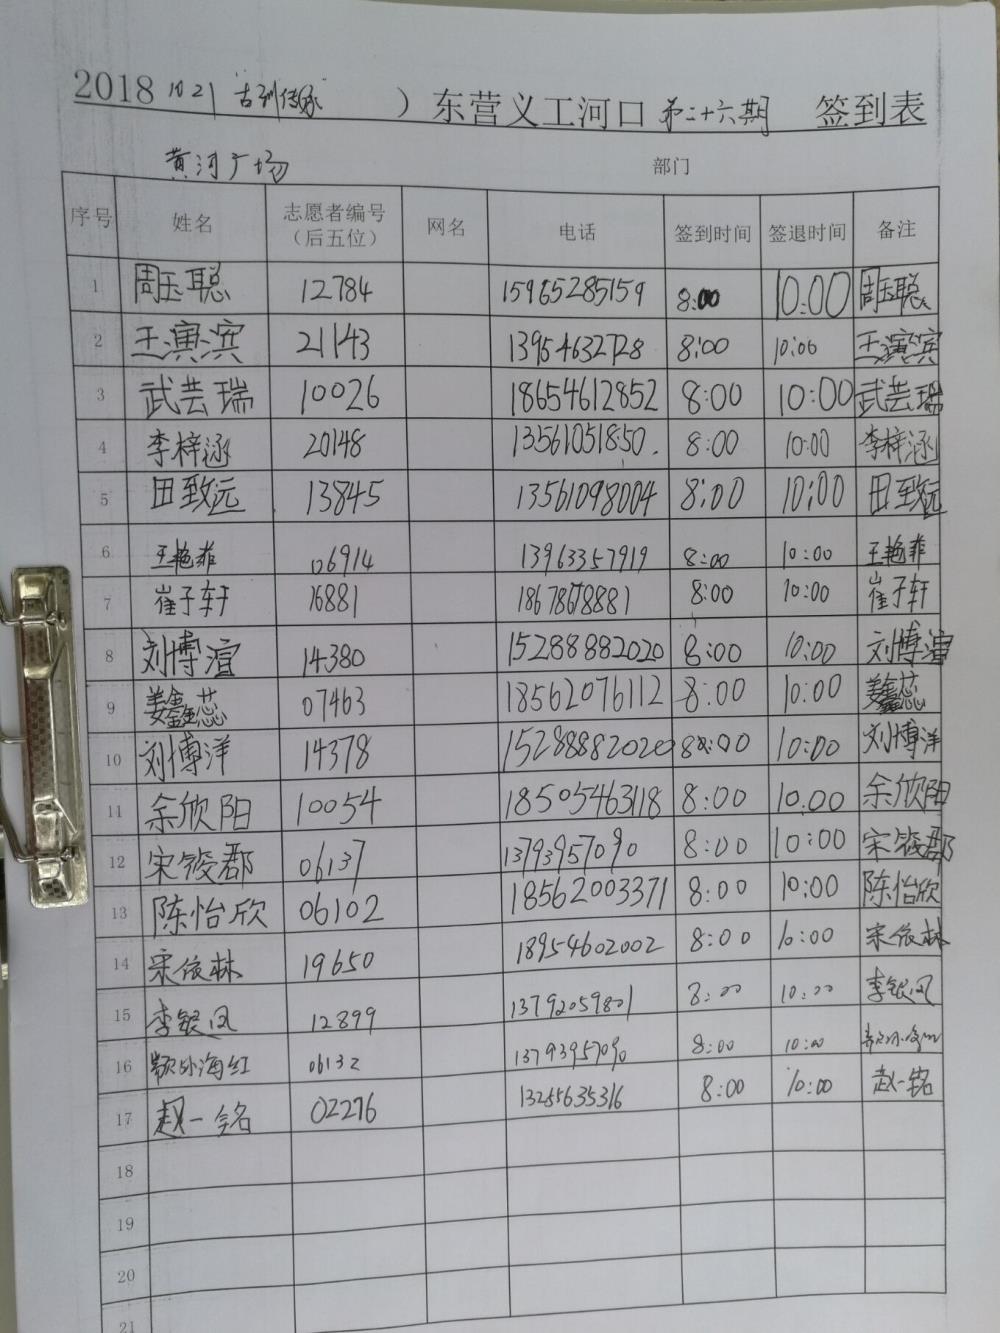 2018 10 21 古 传承 ）东营义工河口 第二十六期 签到表
黄河广场 部门
序号 姓名 志愿者编号（后五位） 网名 电话 签到时间 签退时间 备注
1 周玉聪 12784 15965285159 8:00 10:00 周玉聪
2 王演滨 21143 13954632728 8:00 10:00 王演滨
3 武芸瑞 10026 18654612852 8:00 10:00 武芸瑞
4 李梓涵 20148 13561051850. 8:00 10:00 李梓涵
5 田致远 13845 13561098004 8:00 10:00 田致远
6 王艳菲 06914 13963357919 8:00 10:00 王艳菲
7 崔子轩 16881 18678678881 8:00 10:00 崔子轩
8 刘博渲 14380 15288882020 8:00 10:00 刘博渲
9 姜鑫蕊 07463 18562076112 8:00 10:00 姜鑫蕊
10 刘博洋 14378 15288882020 8:00 10:00 刘博洋
11 余欣阳 10054 18505463118 8:00 10:00 余欣阳
12 宋筱郡 06137 13793957090 8:00 10:00 宋筱郡
13 陈怡欣 06102 18562003371 8:00 10:00 陈怡欣
14 宋依林 19650 18954602002 8:00 10:00 宋依林
15 李银凤 12899 13792059801 8:00 10:00 李银凤
16 海红 06132 13793957090 8:00 10:00
17 赵一铭 02276 13285635316 8:00 10:00 赵一铭
18
19
20
21